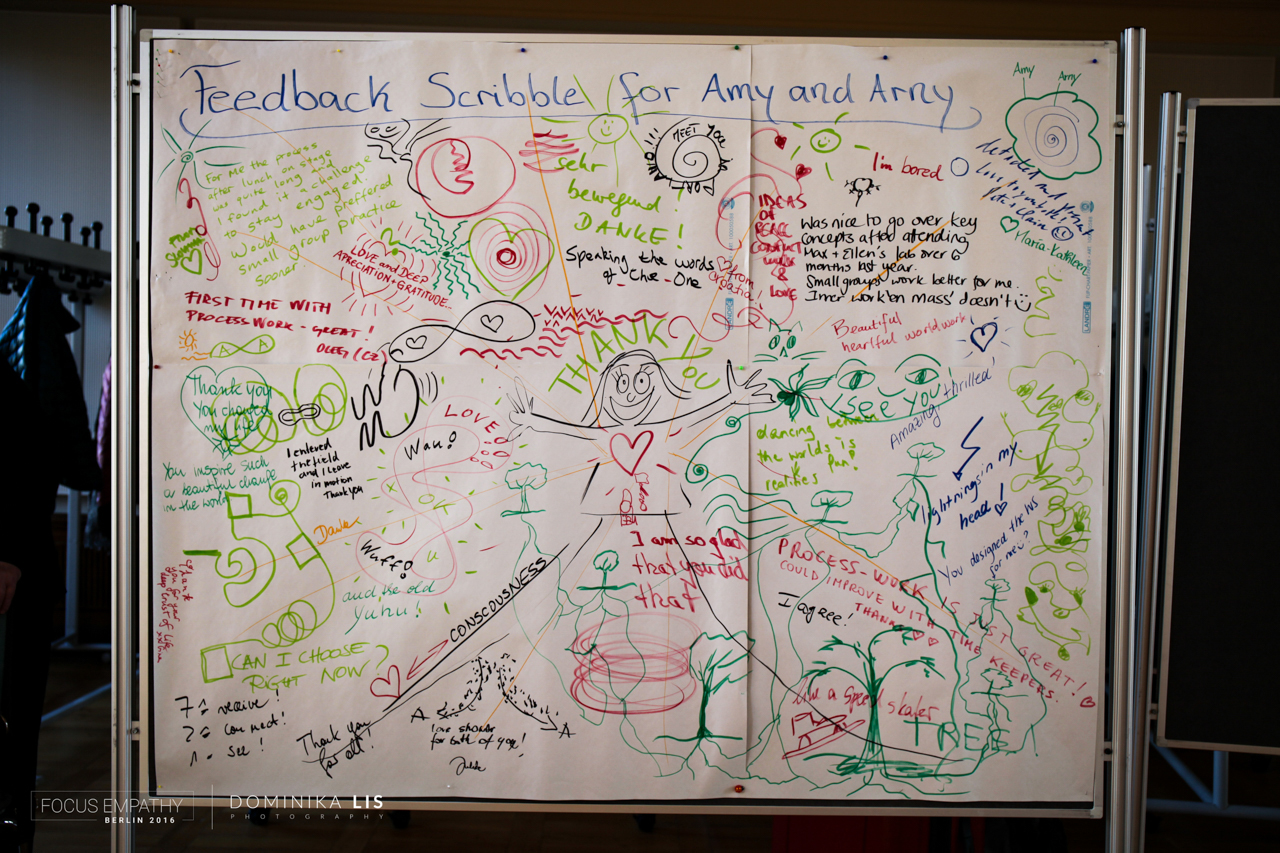 Feedback Scribble for Amy and Arny
Amy Arny
For me the process
after lunch on stage
was quite long and
I found it a challenge
to stay engaged.
Would have preferred
small group practice
sooner.
sehr
bewegend!
DANKE!
MEET YOU
Speaking the words
of the One
LOVE and DEEP
APRECIATION + GRATITUDE...
from
Croatia
IDEAS
OF
PEACE
CONTACT
&
LOVE
I'm bored
Was nice to go over key
concepts after attending
Max + Ellen's lab over 6
months last year.
Small groups work better for me.
Inner work 'en mass' doesn't
Maria-Kathleen
LANDRÉ
LANDRÉ
Beautiful
heartful worldwork
FIRST TIME WITH
PROCESS WORK - GREAT!
OLEG (CZ)
A A
THANK YOU
Thank you!
You changed
my life!
You inspire such
a beautiful change
in the world
I entered
the field
and I leave
in motion
Thank you
LOVE
Wau!
I see you!
Amazing, thrilled!
dancing between
the worlds is
fun!
realities
lightnings in my
head!
You designed the WS
for me?
Danke
Wuff!
and the old
Yuhu!
CONSCOUSNESS
I am so glad
that you did
that
PROCESS-WORK IS JUST GREAT!
COULD IMPROVE WITH TIME KEEPERS.
THANKS
I agree!
CAN I CHOOSE
RIGHT NOW?
7 receive!
2 connect!
1. see!
Thank you
for all!
A A
love shower
for both of you!
like a speed skater
TREE
FOCUS EMPATHY
BERLIN 2016
DOMINIKA LIS
PHOTOGRAPHY